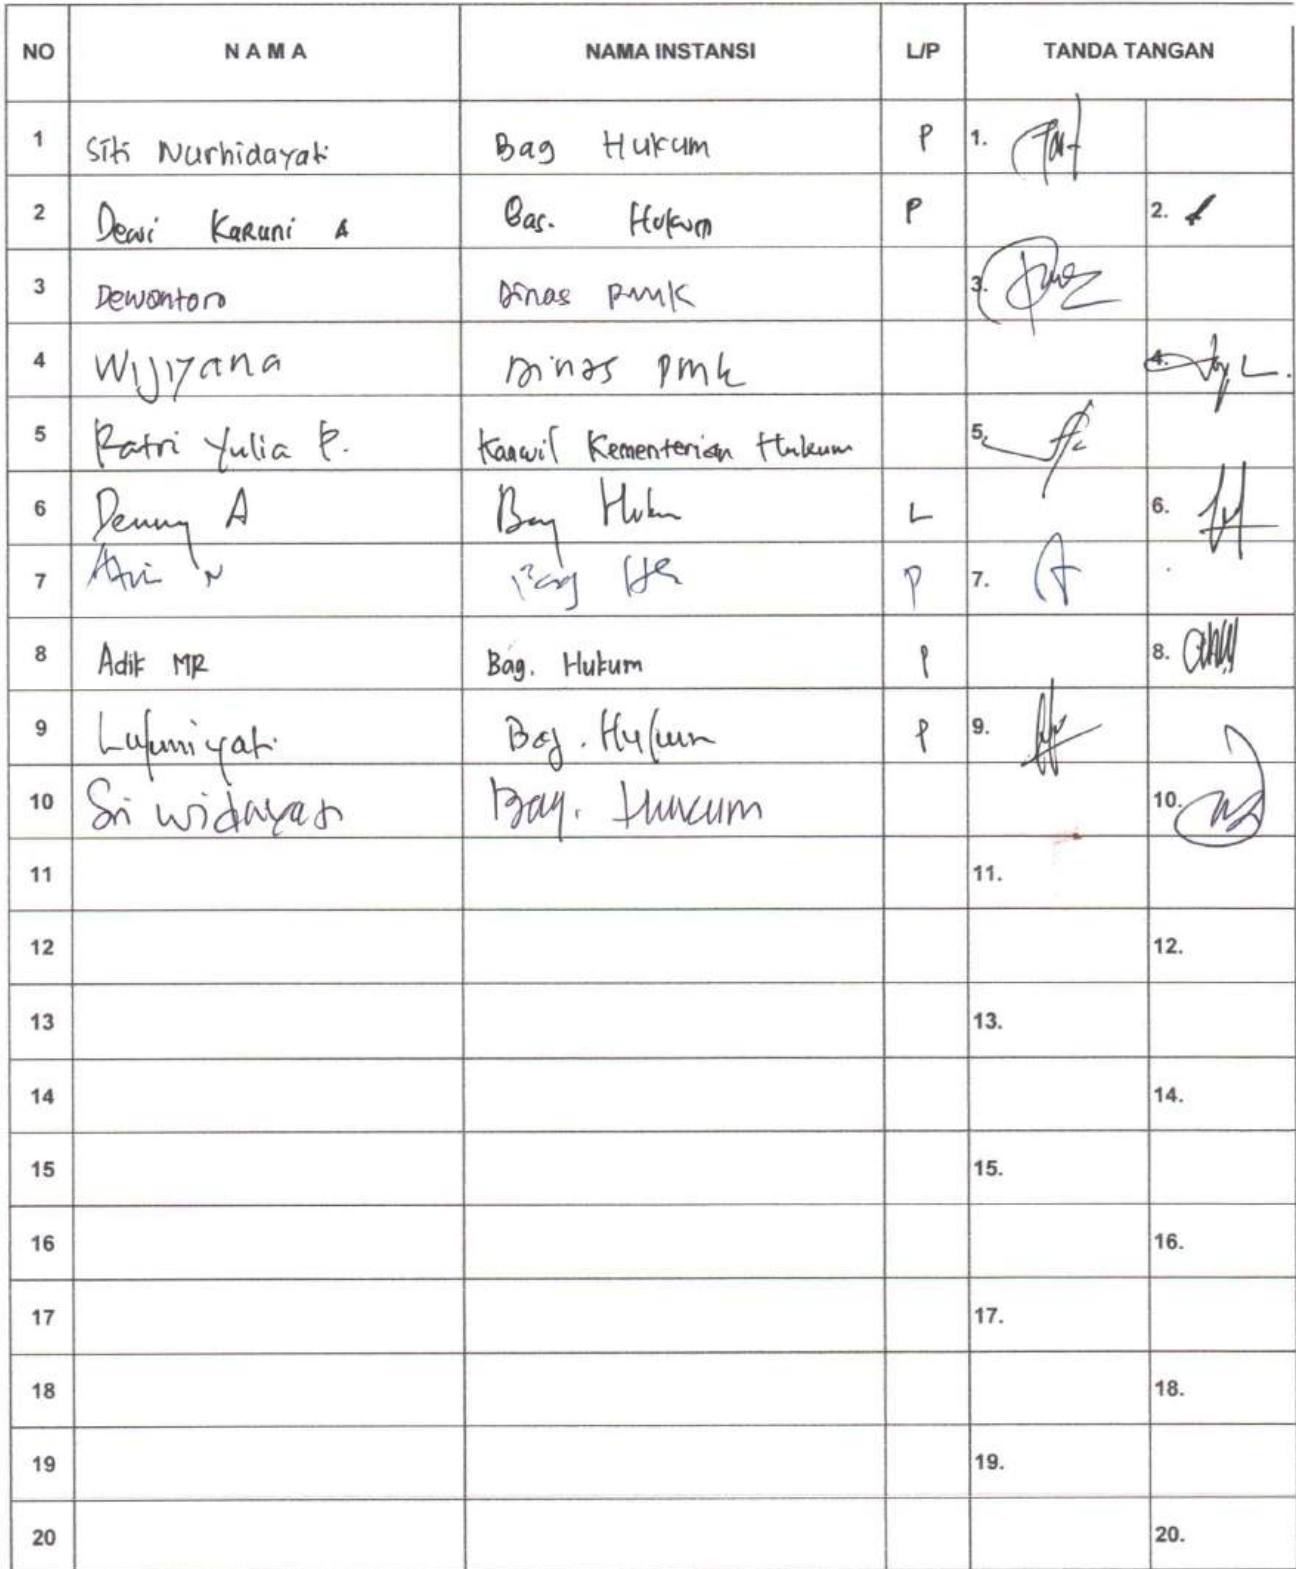 NO NAMA NAMA INSTANSI L/P TANDA TANGAN
1 Siti Nurhidayati Bag Hukum P 1.
2 Dewi Karuni A Bag. Hukum P 2.
3 Dewantoro Dinas PMK 3.
4 Wijiyana Dinas PMK 4.
5 Ratri Yulia P. Kanwil Kementerian Hukum 5.
6 Denny A Bag Hukum L 6.
7 N Bag P 7.
8 Adik MR Bag. Hukum P 8.
9 Bag. Hukum P 9.
10 Sri Widayati Bag. Hukum 10.
11 11.
12 12.
13 13.
14 14.
15 15.
16 16.
17 17.
18 18.
19 19.
20 20.